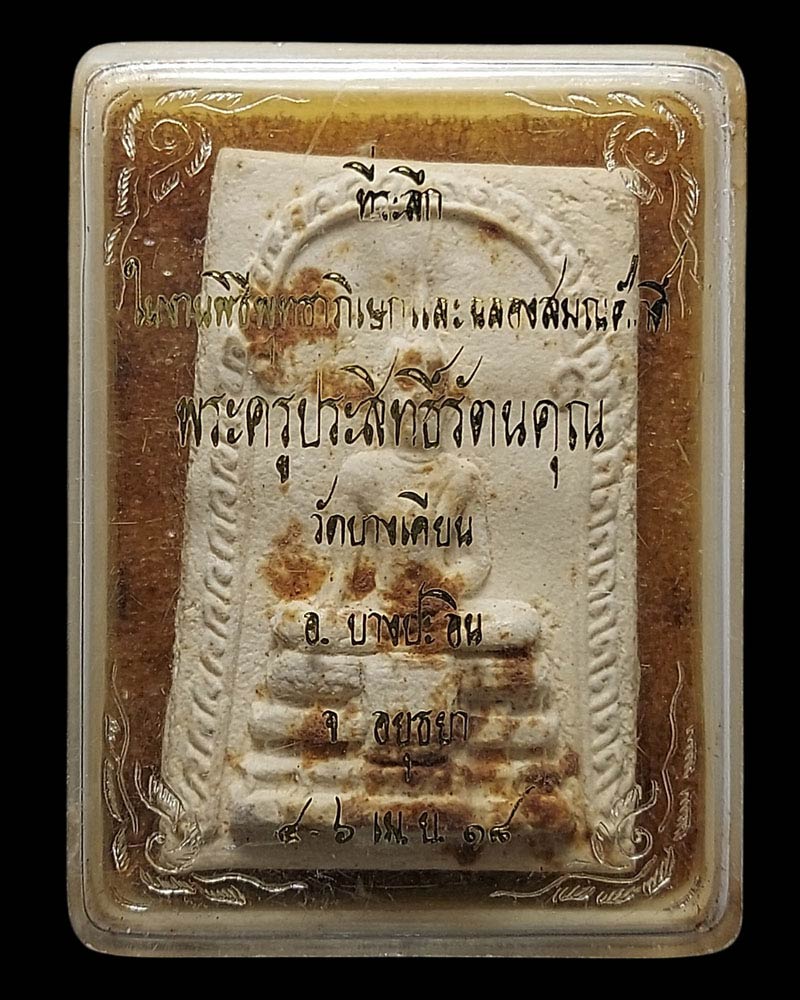 ที่ระลึก
ในงานพิธีพุทธาภิเษกและฉลองสมณศักดิ์
พระครูประสิทธิ์รัตนคุณ
วัดบางเคียน
อ. บางปะอิน
จ. อยุธยา
๔-๖ เม.ย. ๑๘